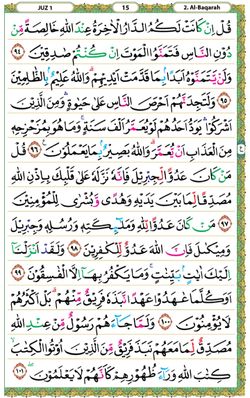 JUZ 1 15 2. Al-Baqarah
قُلْ إِنْ كَانَتْ لَكُمُ الدَّارُ الْآخِرَةُ عِنْدَ اللَّهِ خَالِصَةً مِنْ
دُونِ النَّاسِ فَتَمَنَّوُا الْمَوْتَ إِنْ كُنْتُمْ صَادِقِينَ ٩٤
وَلَنْ يَتَمَنَّوْهُ أَبَدًا بِمَا قَدَّمَتْ أَيْدِيهِمْ وَاللَّهُ عَلِيمٌ بِالظَّالِمِينَ
٩٥ وَلَتَجِدَنَّهُمْ أَحْرَصَ النَّاسِ عَلَىٰ حَيَاةٍ وَمِنَ الَّذِينَ
أَشْرَكُوا يَوَدُّ أَحَدُهُمْ لَوْ يُعَمَّرُ أَلْفَ سَنَةٍ وَمَا هُوَ بِمُزَحْزِحِهِ
مِنَ الْعَذَابِ أَنْ يُعَمَّرَ وَاللَّهُ بَصِيرٌ بِمَا يَعْمَلُونَ ٩٦ قُلْ
مَنْ كَانَ عَدُوًّا لِجِبْرِيلَ فَإِنَّهُ نَزَّلَهُ عَلَىٰ قَلْبِكَ بِإِذْنِ اللَّهِ
مُصَدِّقًا لِمَا بَيْنَ يَدَيْهِ وَهُدًى وَبُشْرَىٰ لِلْمُؤْمِنِينَ
٩٧ مَنْ كَانَ عَدُوًّا لِلَّهِ وَمَلَائِكَتِهِ وَرُسُلِهِ وَجِبْرِيلَ
وَمِيكَالَ فَإِنَّ اللَّهَ عَدُوٌّ لِلْكَافِرِينَ ٩٨ وَلَقَدْ أَنْزَلْنَا
إِلَيْكَ آيَاتٍ بَيِّنَاتٍ وَمَا يَكْفُرُ بِهَا إِلَّا الْفَاسِقُونَ ٩٩
أَوَكُلَّمَا عَاهَدُوا عَهْدًا نَبَذَهُ فَرِيقٌ مِنْهُمْ بَلْ أَكْثَرُهُمْ
لَا يُؤْمِنُونَ ١٠٠ وَلَمَّا جَاءَهُمْ رَسُولٌ مِنْ عِنْدِ اللَّهِ
مُصَدِّقٌ لِمَا مَعَهُمْ نَبَذَ فَرِيقٌ مِنَ الَّذِينَ أُوتُوا الْكِتَابَ
كِتَابَ اللَّهِ وَرَاءَ ظُهُورِهِمْ كَأَنَّهُمْ لَا يَعْلَمُونَ ١٠١